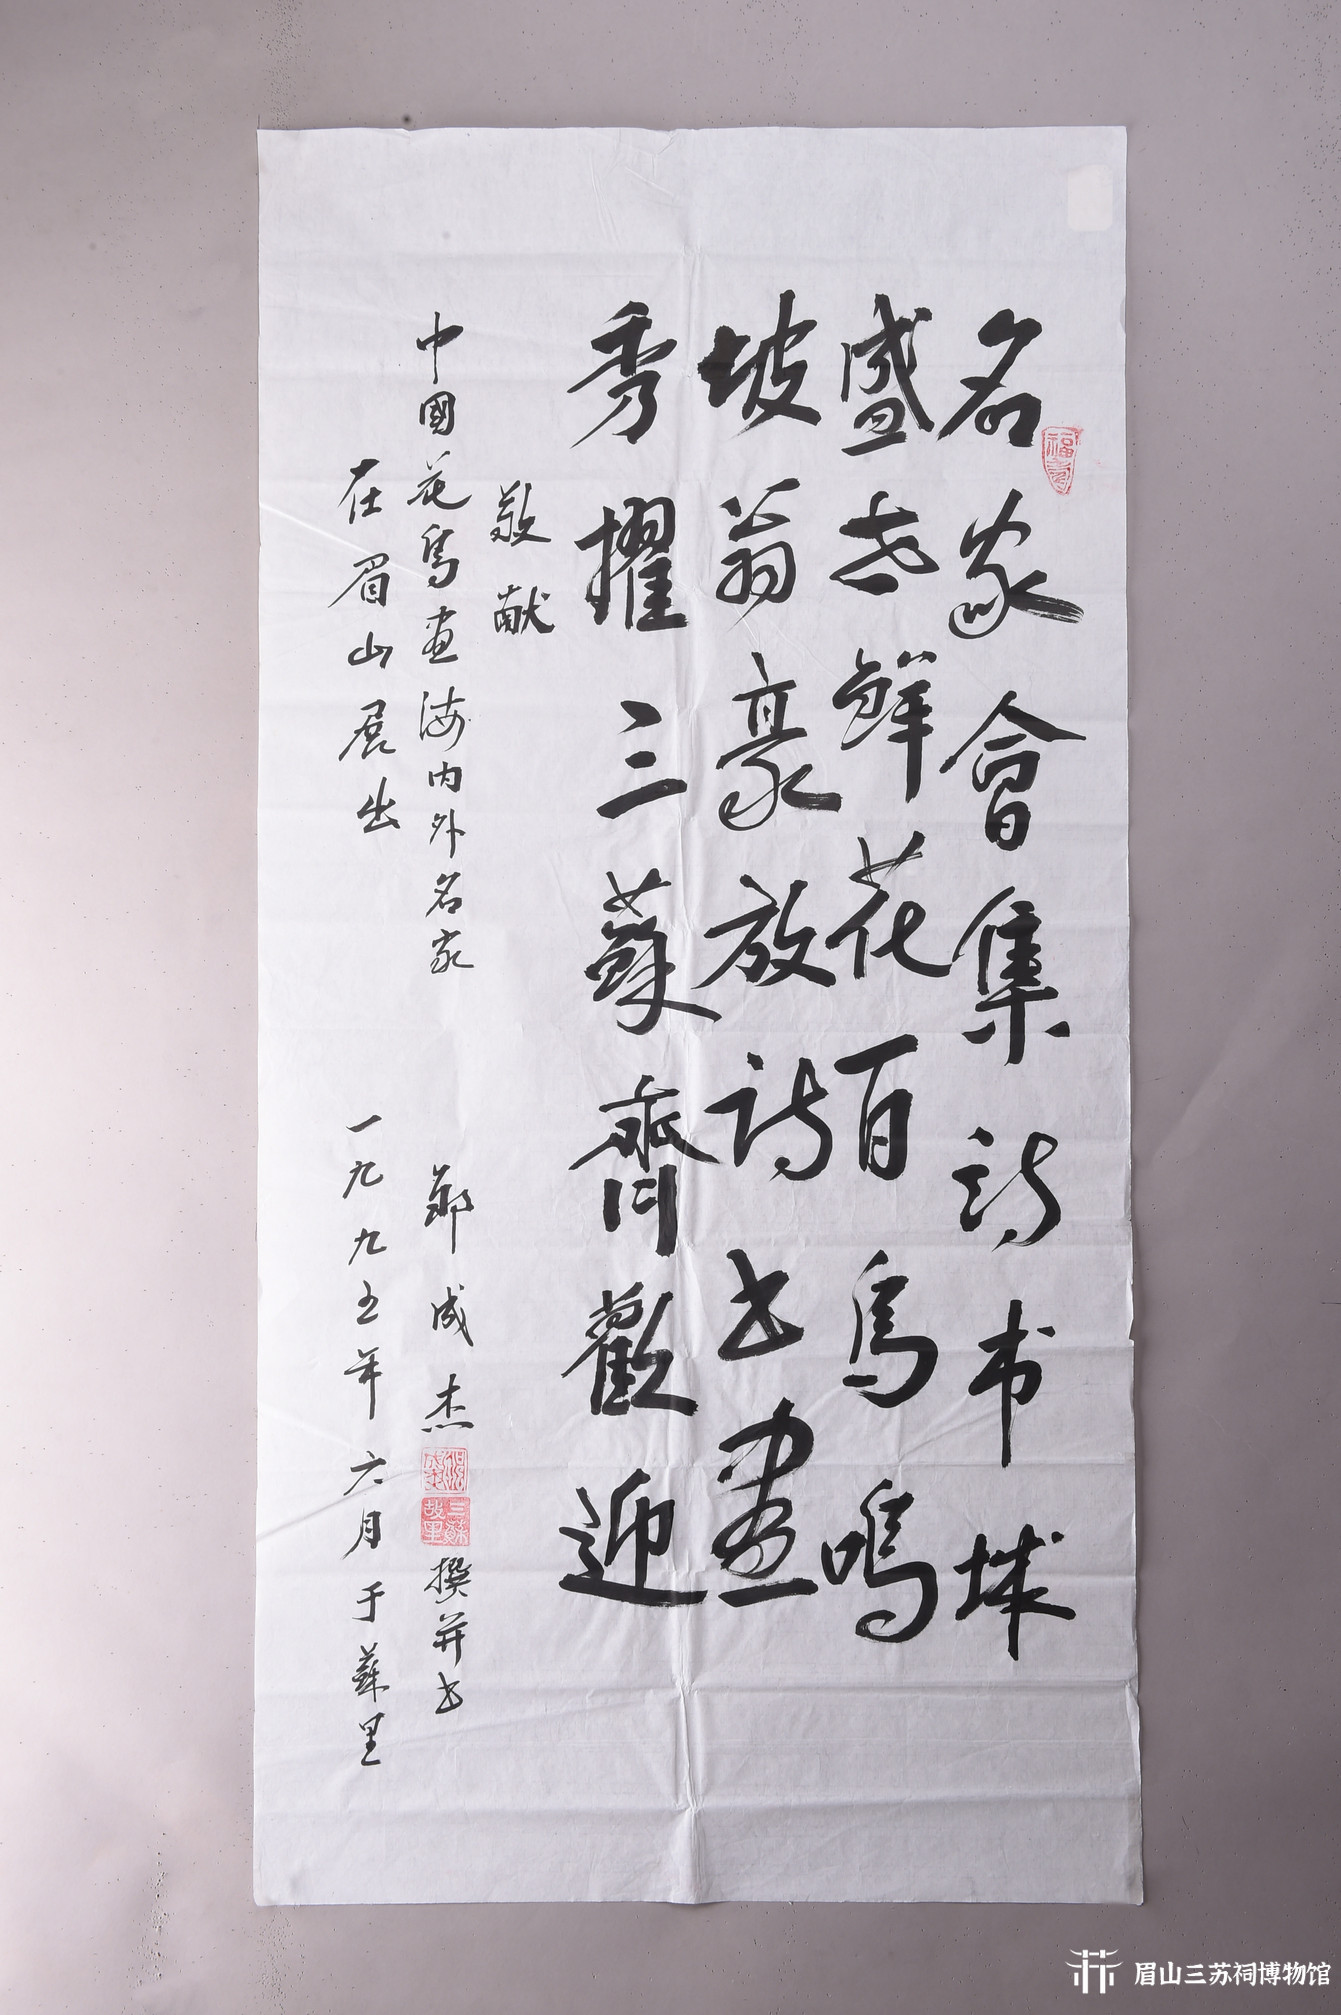 名家會集诗书城
盛世鲜花百鸟鳴
坡翁豪放诗书畫
秀擢三蘇齊歡迎
敬献
中國花鸟画海内外名家
在眉山展出
郑成杰
撰并书
一九九五年六月于蘇里
福寿
三蘇故里
眉山三苏祠博物馆